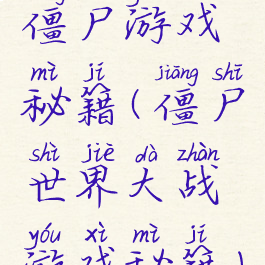 僵尸游戏
mì jí jiāng shī
秘籍(僵尸
shì jiè dà zhàn
世界大战
yóu xì mì jí
游戏秘籍)